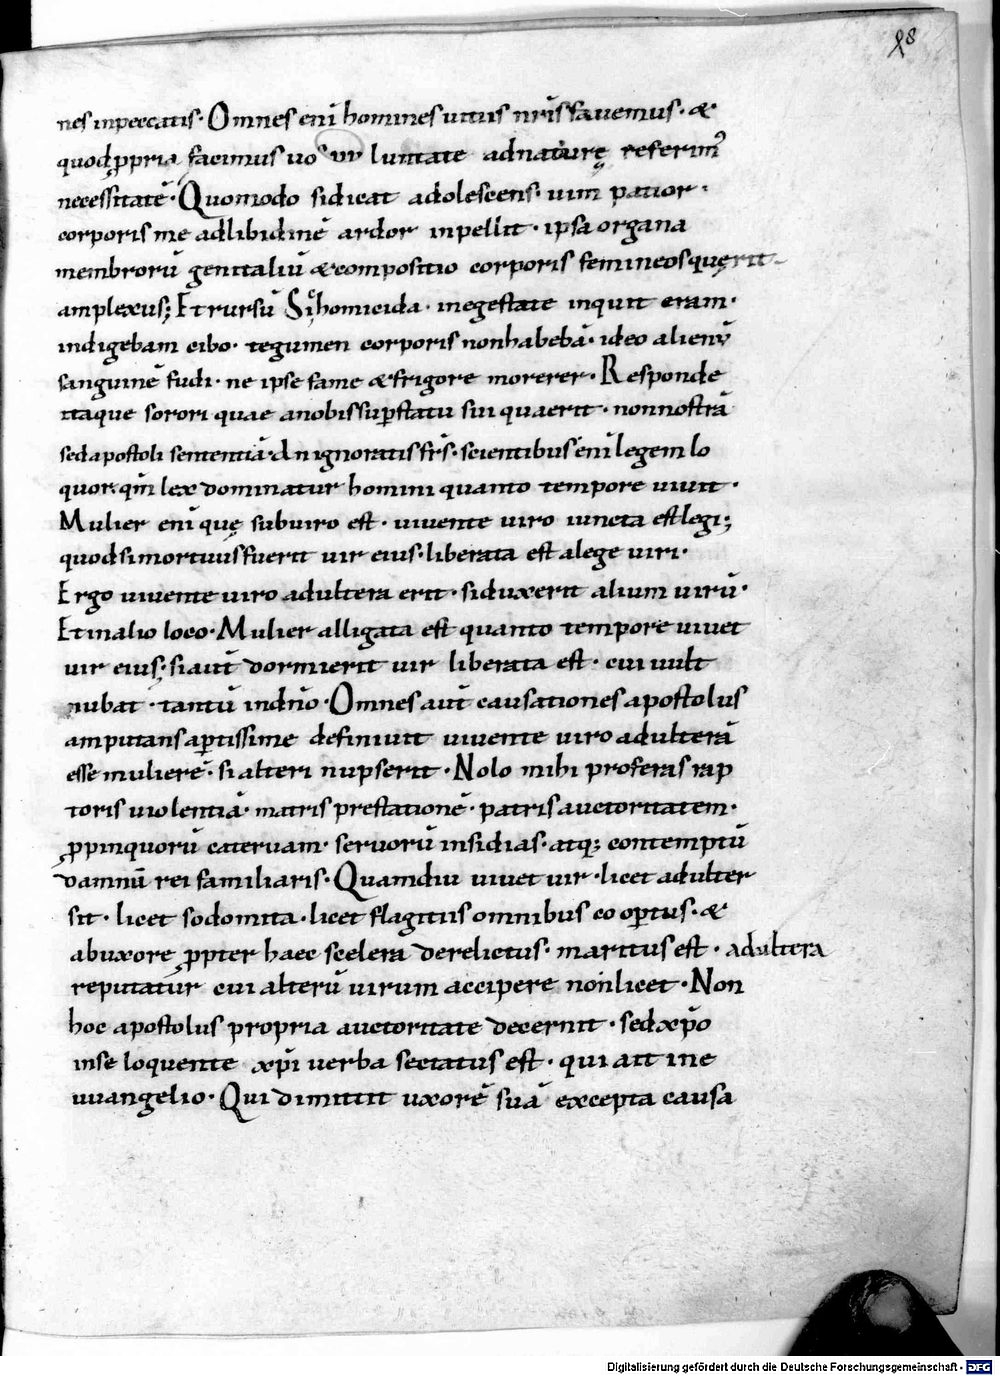 88
nes inpeccatis· Omnes eni̅ homines uitiis n̅ris fauemus· &
quod ꝓpria facimus uoluntate adnaturę referim᷒
necessitate̅· Quomodo sidicat adolescens· uim patior·
corporis me adlibidine̅ ardor inpellit· ipsa organa
membroru̅ genitaliu̅ &compositio corporis femineos quęrit
amplexus; Et rursu̅ Si homicida· inegestate inquit eram·
indigebam cibo· tegumen corporis nonhabeba̅· ideo alienu̅
sanguine̅ fudi· ne ipse fame &frigore morerer· Responde
itaque sorori quae anobis sup̅statu sui quaerit· nonnostra̅
sedapostoli sententia̅· An ignoratis fr̅s· scientibus eni̅ legem lo
quor· qm̅ lex dominatur homini quanto tempore uiuit·
Mulier eni̅ quę subuiro est· uiuente uiro iuncta est legi;
quodsimortuus fuerit uir eius· liberata est alege uiri·
Ergo uiuente uiro adultera erit· siduxerit alium uiru̅·
Et inalio loco· Mulier alligata est quanto tempore uiuet
uir eius; siaut̅ dormierit uir liberata est· cui uult
nubat· tantu̅ indn̅o· Omnes aut̅ causationes apostolus
amputans ap̅tissime definiuit uiuente uiro adultera̅
esse muliere̅· si alteri nupserit· Nolo mihi proferas rap
toris uiolentia̅· matris prestatione̅· patris auctoritatem·
ꝓpinquoru̅ cateruam· seruoru̅ insidias· atq; contemptu̅
damnu̅ rei familiaris· Quamdiu uiuet uir· licet adulter
sit· licet sodomita· licet flagitiis omnibus coop̅tus· &
abuxore ꝓpter haec scelera derelictus· maritus est· adultera
reputatur cui alteru̅ uirum accipere nonlicet· Non
hoc apostolus propria auctoritate decernit· sedxp̅o
inse loquente xp̅i uerba sectatus est· qui ait in e
uuangelio· Qui dimittit uxore̅ sua̅ excepta causa
Digitalisierung gefördert durch die Deutsche Forschungsgemeinschaft - DFG